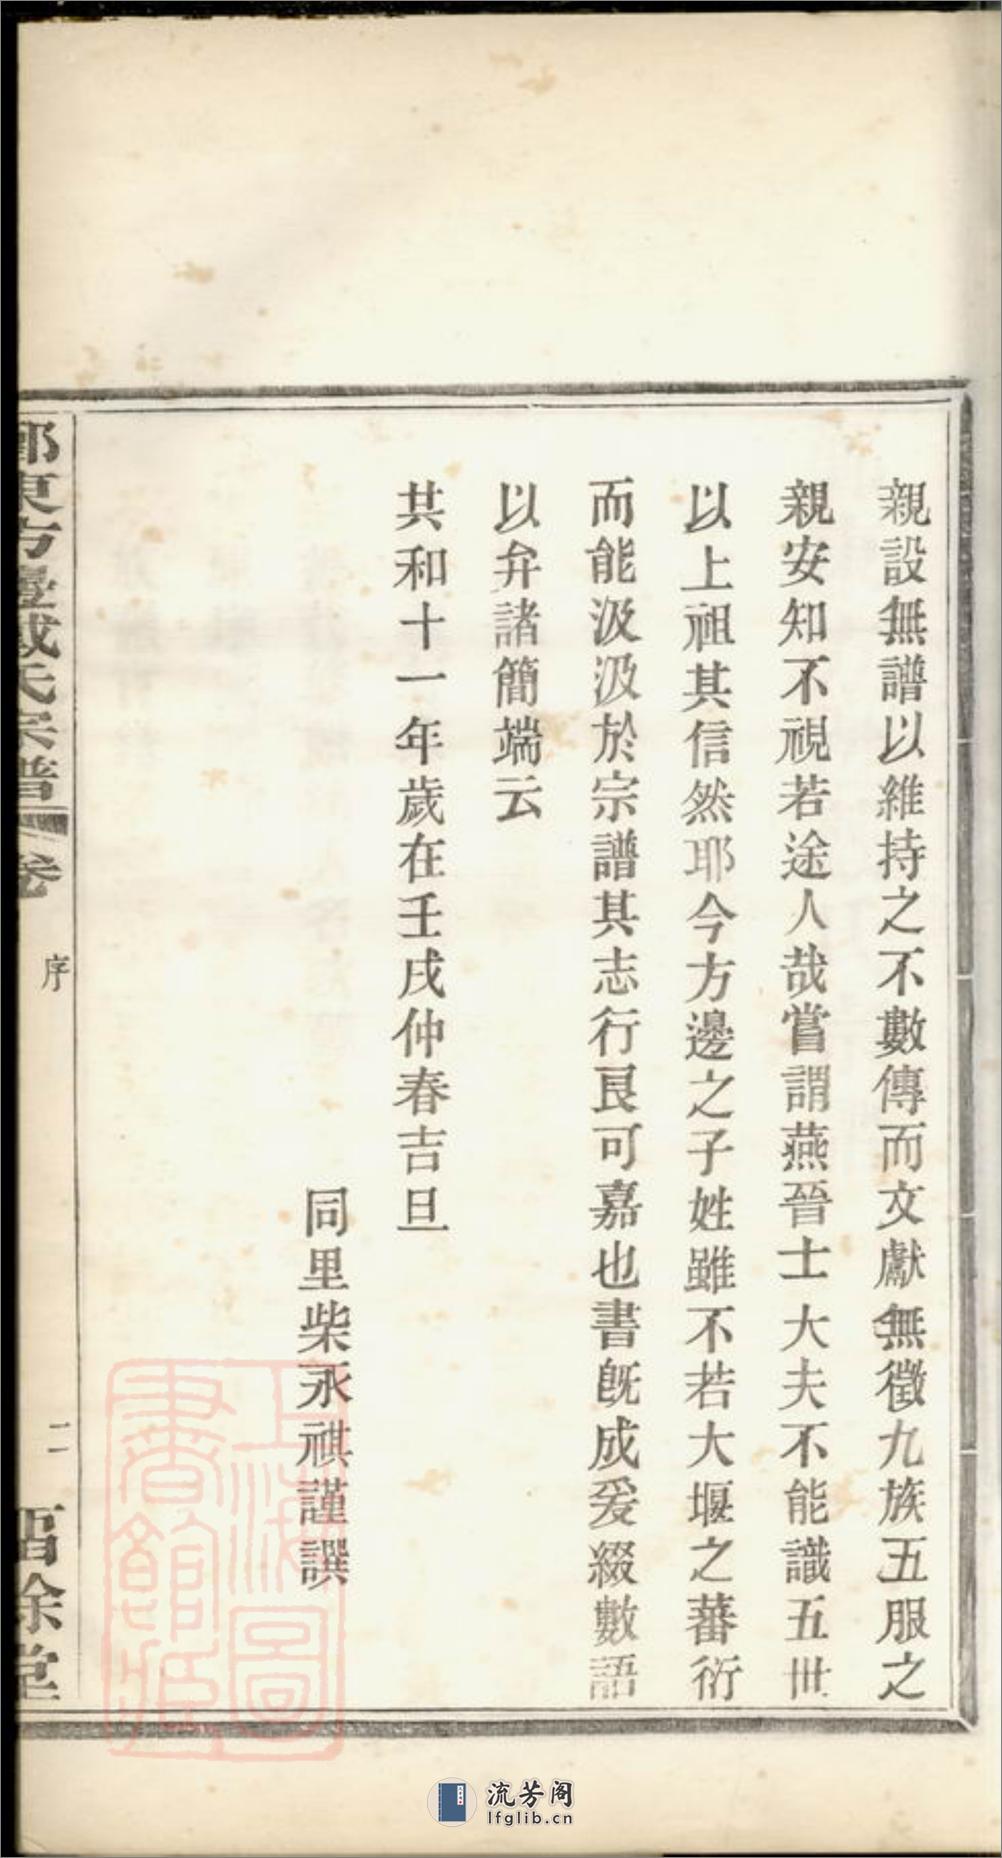 親設無譜以維持之不數傳而文獻無徵九族五服之
親安知不視若途人哉嘗謂燕晉士大夫不能識五世
以上祖其信然耶今方邊之子姓雖不若大堰之蕃衍
而能汲汲於宗譜其志行艮可嘉也書旣成爰綴數語
以弁諸簡端云
共和十一年歲在壬戌仲春吉旦
同里柴永祺謹譔
鄞東方邊戴氏宗譜 卷 序 二 留餘堂
上海圖書館藏
流芳阁
lfglib.cn